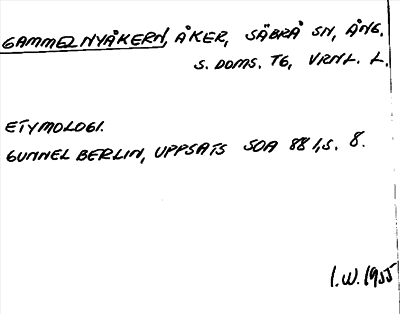 GAMMELNYÅKERN, ÅKER, SÄBRÅ SN, ÅNG.
S. DOMS. TG, VRNL. L.
ETYMOLOGI.
GUNNEL BERLIN, UPPSATS SOA 88 1, S. 8.
I.W. 1955